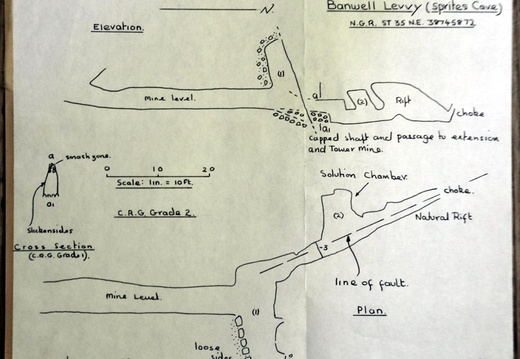 N.
Banwell Levvy (Sprites Cave)
N.G.R. ST 35 N.E. 38745872
Elevation.
(1)
a
(2)
Rift
Mine level.
choke
a1
Capped shaft and passage to extension
and Tower Mine.
a
smashzone.
Slickensides
a1
Cross Section
(C.R.G. Grade 1).
0 10 20
Scale: 1in. = 10ft.
C.R.G. Grade 2.
Solution Chamber.
choke.
(2)
Natural Rift
-3
line of fault.
Plan.
Mine Level.
(1)
loose
sides